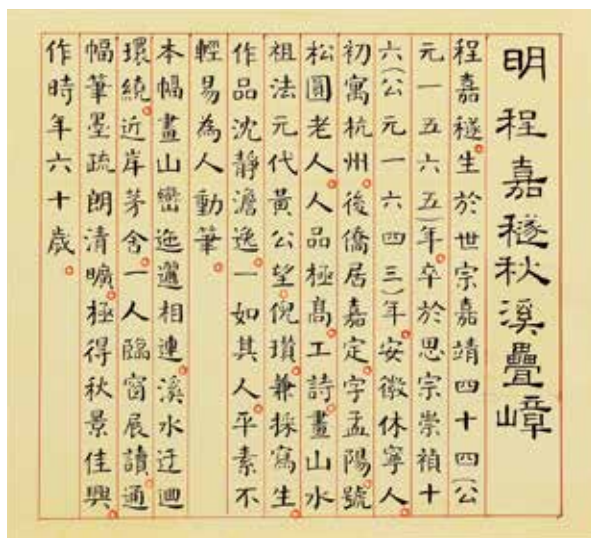 明程嘉燧秋溪疊嶂
程嘉燧。生於世宗嘉靖四十四(公
元一五六五)年。卒於思宗崇禎十
六(公元一六四三)年。安徽休寧人。
初寓杭州。後僑居嘉定。字孟陽。號
松圓老人。人品極高。工詩。畫山水
祖法元代黃公望。倪瓚。兼採寫生。
作品沈靜澹逸。一如其人。平素不
輕易為人動筆。
本幅畫山巒迤邐相連。溪水迂迴
環繞。近岸茅舍。一人臨窗展讀。通
幅筆墨疏朗清曠。極得秋景佳興。
作時年六十歲。